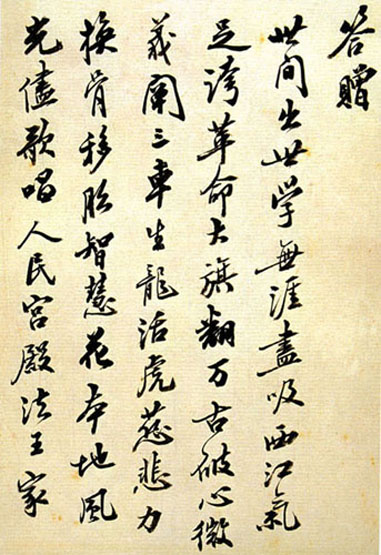 答贈
世间出世学無涯盡吸西江氣
足誇革命大旗翻万古破心微
義闡三車生龍活虎慈悲力
換骨移胎智慧花本地風
光儘歌唱人民宫殿法王家